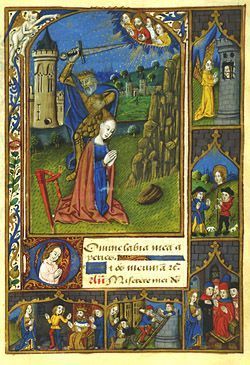 Domine labia mea a
peries
Et os meum
Miserere mei